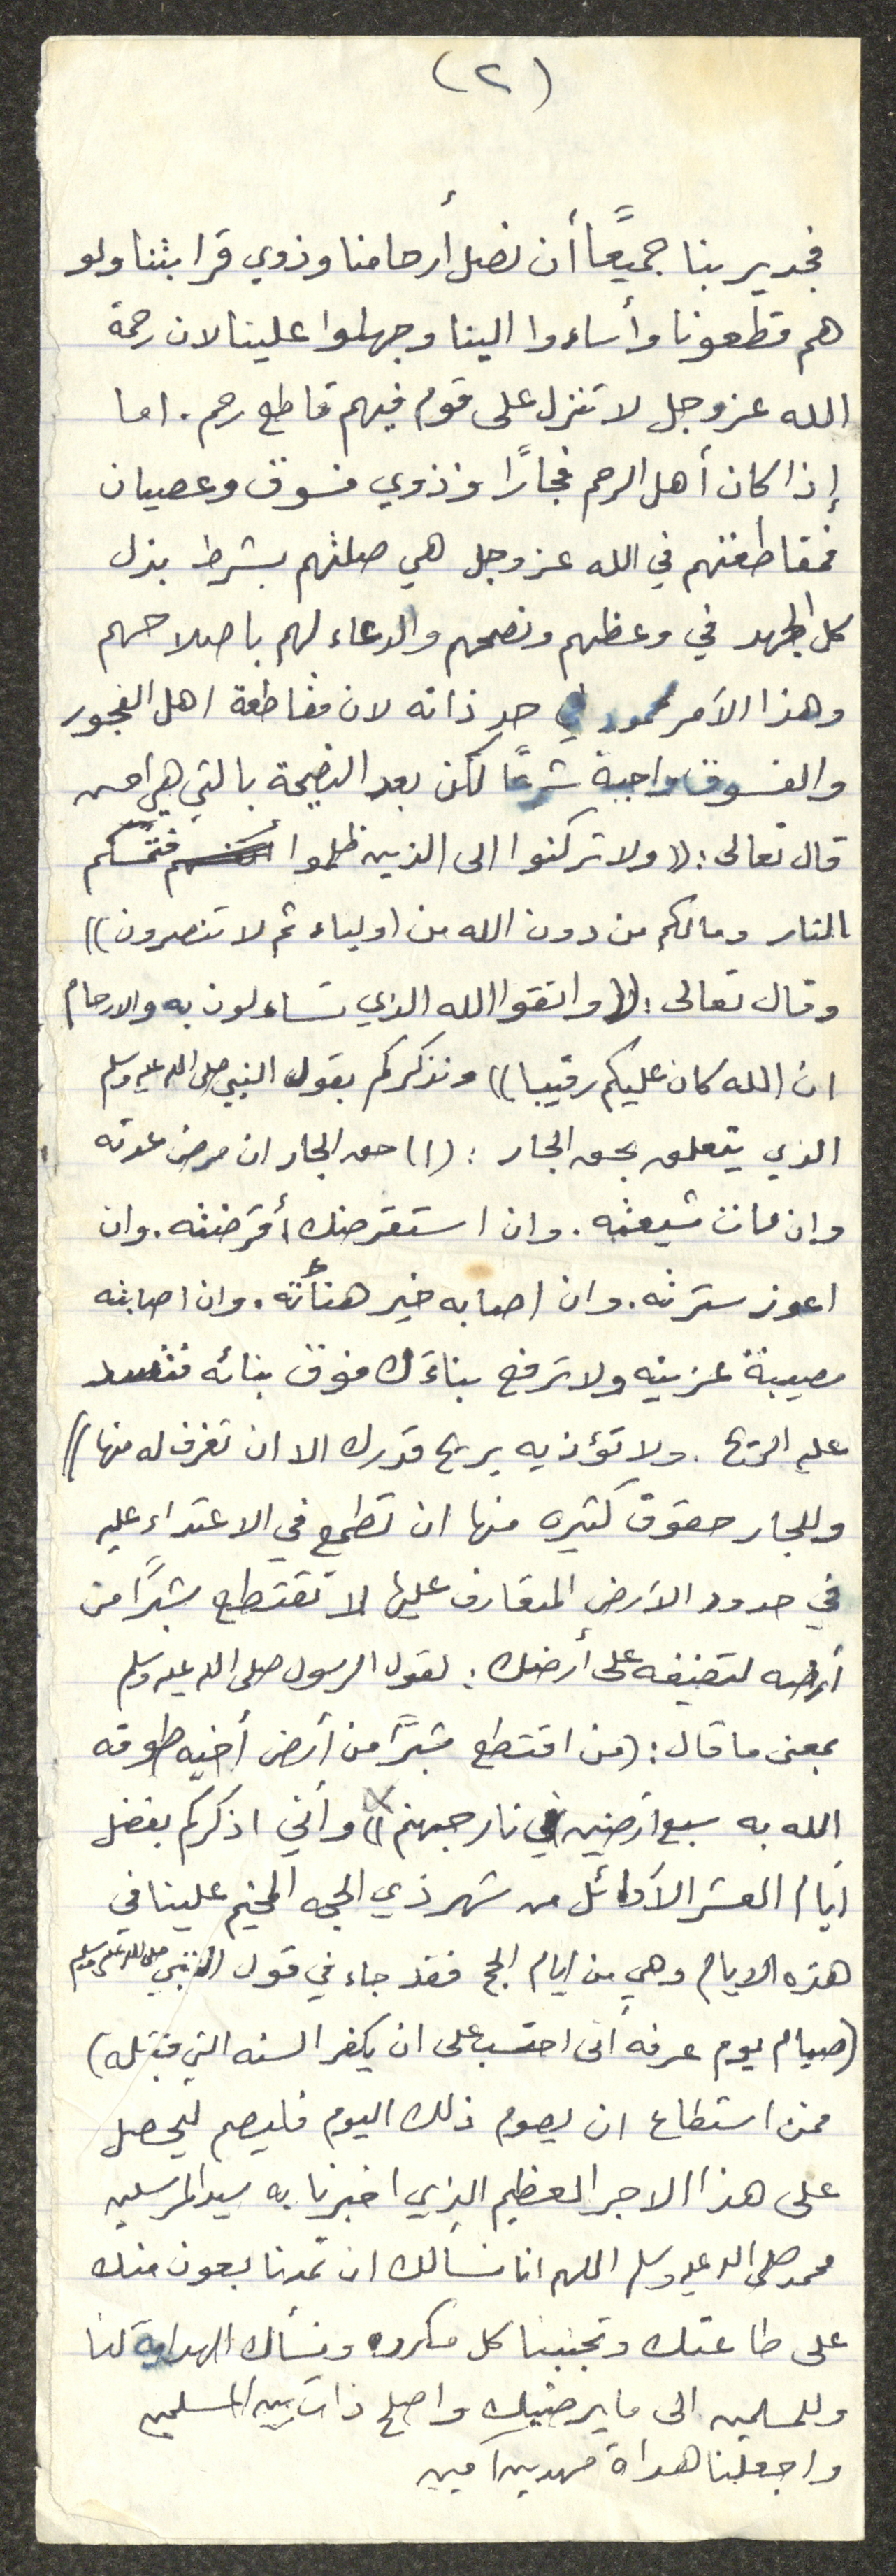 (٢)
فجدير بنا جميعًا أن نصل أرحامنا وذوي قرابتنا ولو
هم قطعونا وأساءوا الينا وجهلوا علينا لان رحمة
الله عز وجل لا تنزل على قوم فيهم قاطع رحم. اما
إذا كان أهل الرحم فجارًا وذوي فسوق وعصيان
فمقاطعتهم في الله عز وجل هي صلتهم بشرط بذل
كل الجهد في وعظهم ونصحهم والدعاء لهم باصلاحهم
وهذا الأمر محمود في حد ذاته لان مقاطعة اهل الفجور
والفسوق واجبة شرعًا لكن بعد النصيحة بالتي هي احسن
قال تعالى: ((ولا تركنوا الى الذين ظلموا فتمسكم
النار ومالكم من دون الله من اولياء ثم لا تنصرون))
وقال تعالى: ((واتقوا الله الذي تساءلون به والارحام
ان الله كان عليكم رقيبا)) ونذكركم بقول النبي صلى الله عليه وسلم
الذي يتعلق بحق الجار: ((حق الجار ان مرض عدته
وان مات شيعته. وان استقرضك أقرضته. وان
اعوز سترته. وان اصابه خير هنأته. وان اصابته
مصيبة عزيته ولا ترفع بناءك فوق بنائه فتسد
عليه الريح. ولا تؤذيه بريح قدرك الا ان تغرف له منها))
وللجار حقوق كثيره منها ان تطمع في الاعتداء عليه
في حدود الأرض المتعارف عليها لا تقتطع شبرًا من
أرضه لتضيفه على أرضك: لقول الرسول صلى الله عليه وسلم
بمعنى ما قال: (من اقتطع شبرًا من أرض أخيه طوقه
الله به سبع أرضين في نار جهنم)) وأني اذكركم بفضل
ايام العشر الأوائل من شهر ذي الحجه المخيم علينا في
هذه الايام وهي من ايام الحج فقد جاء في قول النبي صلى الله عليه وسلم
(صيام يوم عرفه أنى احتسب على ان يكفر السنه التي قبله)
فمن استطاع ان يصوم ذلك اليوم فليصم ليحصل
على هذا الاجر العظيم الذي اخبرنا به سيد المرسلين
محمد صلى الله عليه وسلم اللهم انا نسألك ان تمدنا بعون منك
على طاعتك وتجنبنا كل مكروه ونسألك الهداية لنا
وللمسلمين الى ما يرضيك واصلح ذات بين المسلمين
واجعلنا هداة مهديين آمين